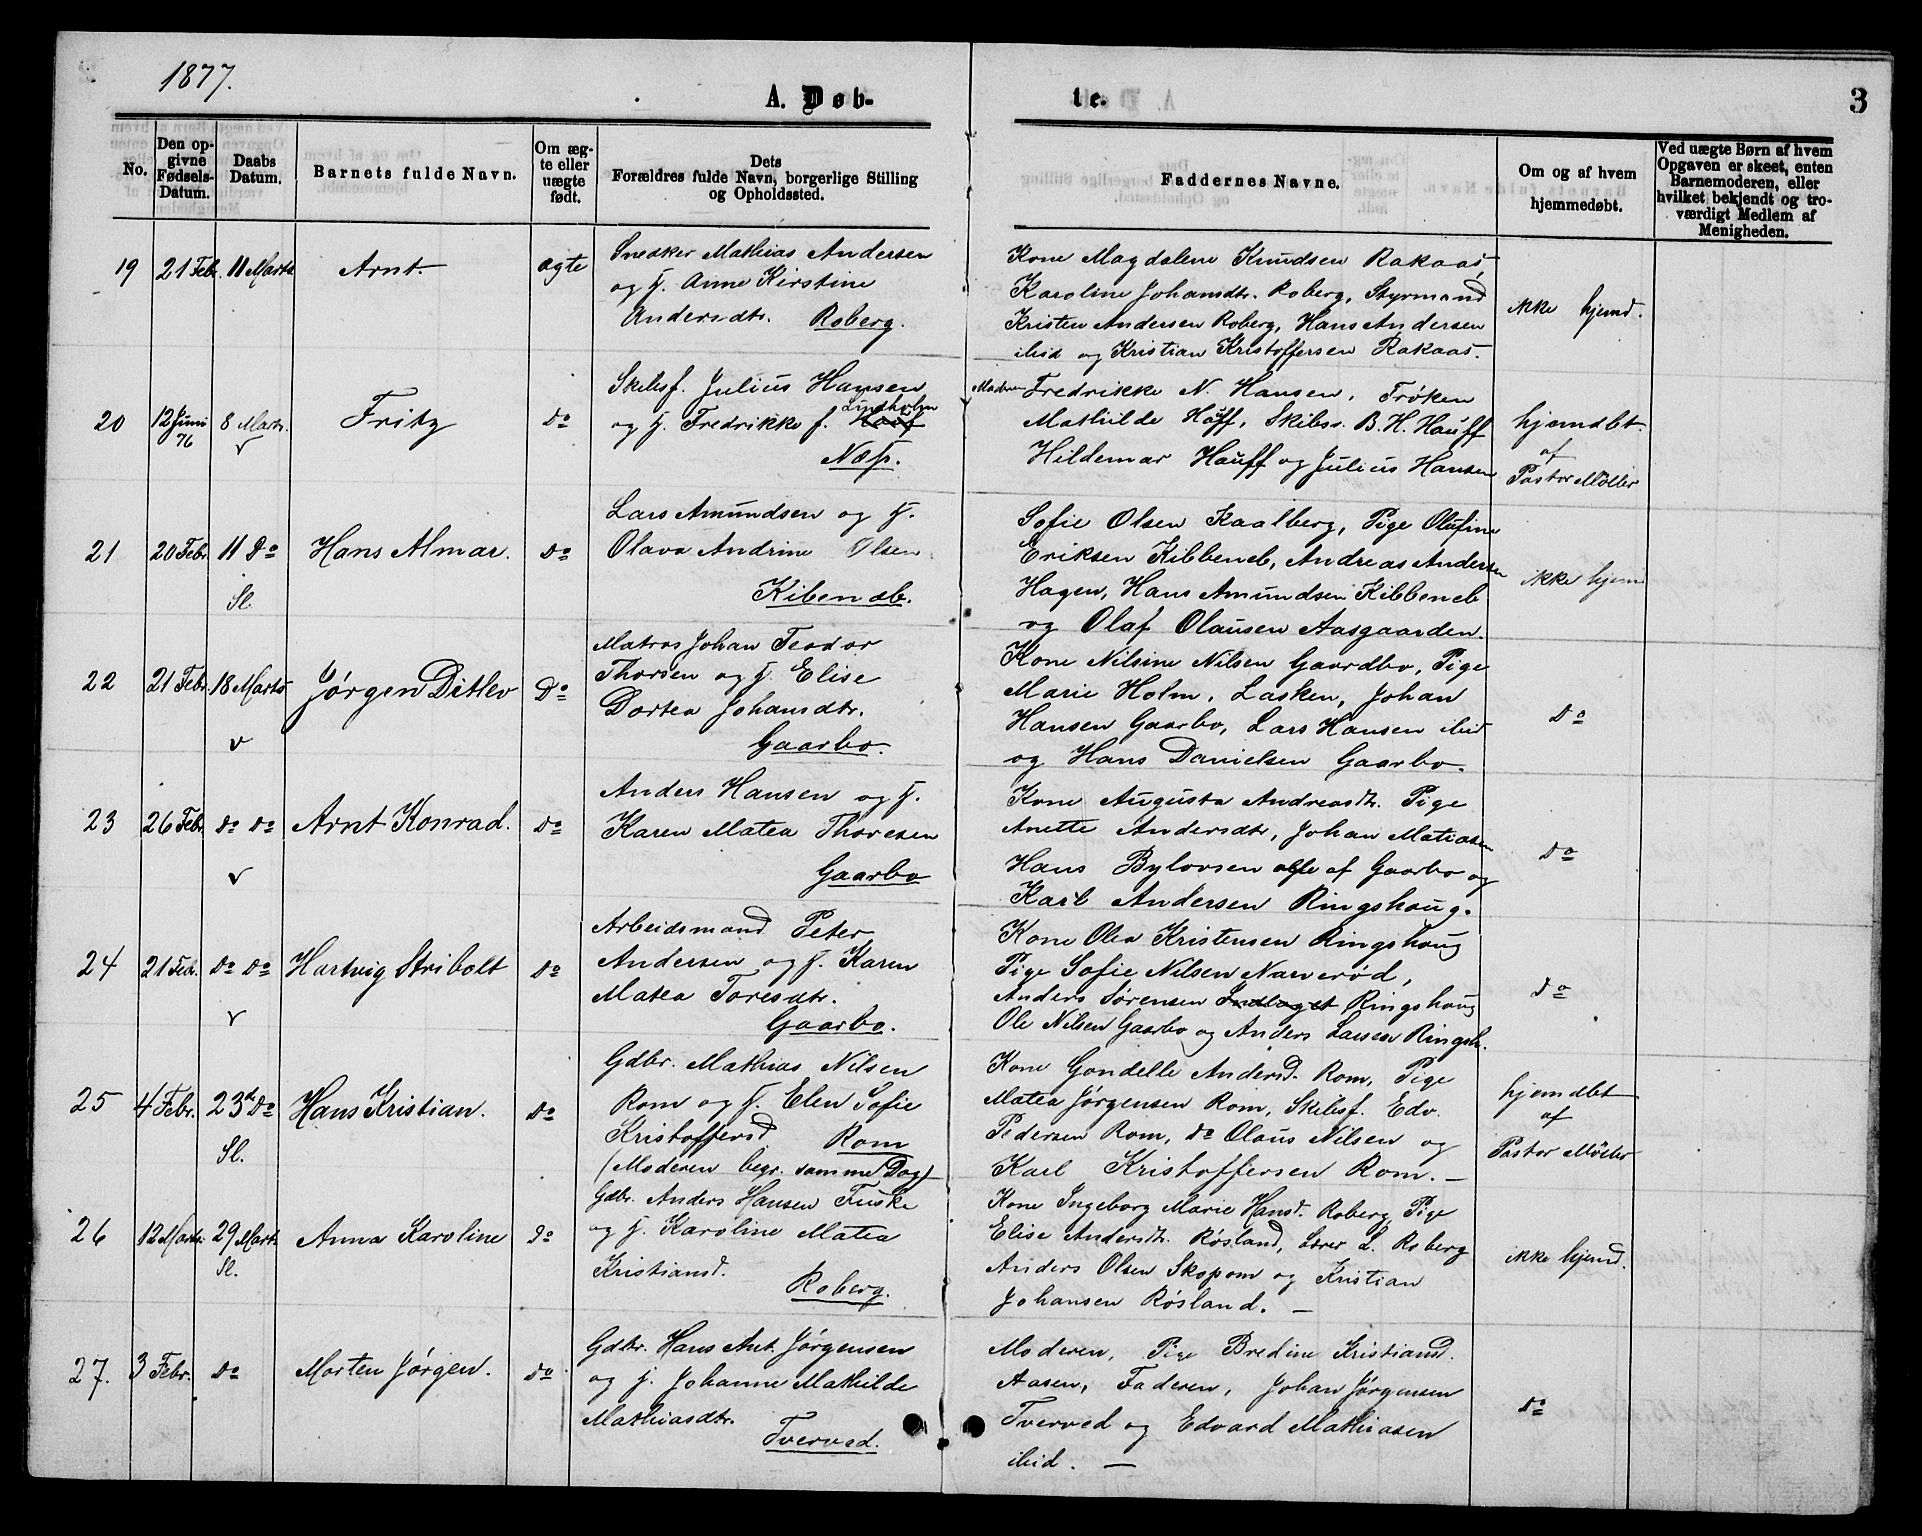 1877.
A. Døb-
te.
3
No.
Den op-
givne
Fødsels-
Datum.
Daabs
Datum.
Barnets fulde Navn.
Om æg-
te eller
uægte
født.
Dets
Forældres fulde Navn, borgerlige Stilling
og Opholdssted.
Faddernes Navne.
Om og af hvem
hjemmedøbt.
Ved uægte Børn af hvem
Opgaven er skeet, enten
Barnemoderen, eller
hvilket bekjendt og tro-
værdigt Medlem af
Menigheden.
19 21 Febr. 11 Marts Arnt. ægte
Snedker Mathias Andersen
og H. Anne Kirstine
Andersdtr. Roberg.
Kone Magdalene Knudsen Rakaas,
Karoline Johansdtr. Roberg, Styrmand
Kristen Andersen Roberg, Hans Andersen
ibid og Kristian Kristoffersen Rakaas.
ikke hjemd.
20 12 Juni 76 8 Marts. v Fritz do
Skibsf. Julius Hansen
Lindholm
og H. Fredrikke f.
Næs.
Moderen Fredrikke N. Hansen, Frøken
Mathilde Hauff, Skibss. B. H. Hauff
Hildemar Hauff og Julius Hansen
hjemdbt.
af
Pastor Møller
21 20 Febr. 11 do Sl. Hans Almar. do
Lars Amundsen og H.
Olava Andrine Olsen
Kibeneb.
Sofie Olsen Kaalberg, Pige Olufine
Eriksen Kibbeneb, Andreas Andersen
Hagen, Hans Amundsen Kibbeneb
og Olaf Olausen Aasgaarden.
ikke hjem
22 21 Febr. 18 Marts v Jørgen Ditlev do
Matros Johan Teodor
Thorsen og H. Elise
Dortea Johansdtr.
Gaarbo.
Kone Nilsine Nilsen Gaardbo, Pige
Marie Holm, Lasken, Johan
Hansen Gaarbo, Lars Hansen ibid
og Hans Danielsen Gaarbo.
do
23 26 Febr. do do v Arnt Konrad. do
Anders Hansen og H.
Karen Matea Thoresen
Gaarbo
Kone Augusta Andreasdtr. Pige
Anette Andersdtr, Johan Matiasen
Hans Bylovsen alle af Gaarbo og
Karl Andersen Ringshoug.
do
24 21 Febr. do do v Hartvig Stribolt do
Arbeidsmand Peter
Andersen og H. Karen
Matea Toresdtr.
Gaarbo.
Kone Olea Kristensen Ringshoug
Pige Sofie Nilsen Narverød,
Anders Sørensen Ringshoug
Ole Nilsen Gaarbo og Anders Larsen Ringsh.
do
25 4 Febr. 23de do Sl. Hans Kristian. do
Gdbr. Mathias Nilsen
Rom og H. Elen Sofie
Kristoffersd Rom
(Moderen begr. samme Dag)
Kone Gondelle Andersd. Rom, Pige
Matea Jørgensen Rom, Skibsf. Edv.
Pedersen Rom, do Olaus Nilsen og
Karl Kristoffersen Rom. –
hjemdbt
af
Pastor Møller
26 12 Marts. 29 Marts Sl. Anna Karoline do
Gdbr. Anders Hansen Fuske
og H. Karoline Matea
Kristiansd.
Roberg.
Kone Ingeborg Marie Hansd. Roberg, Pige
Elise Andersdtr. Røsland, Lærer L. Roberg
Anders Olsen Skopom og Kristian
Johansen Røsland. –
ikke hjemd.
27. 3 Febr. do Morten Jørgen. do
Gdbr. Hans Ant. Jørgensen
og H. Johanne Mathilde
Mathiasdtr.
Tverved.
Moderen, Pige Bredine Kristiansd.
Aasen, Faderen, Johan Jørgensen
Tverved og Edvard Mathiasen
ibid. –
do